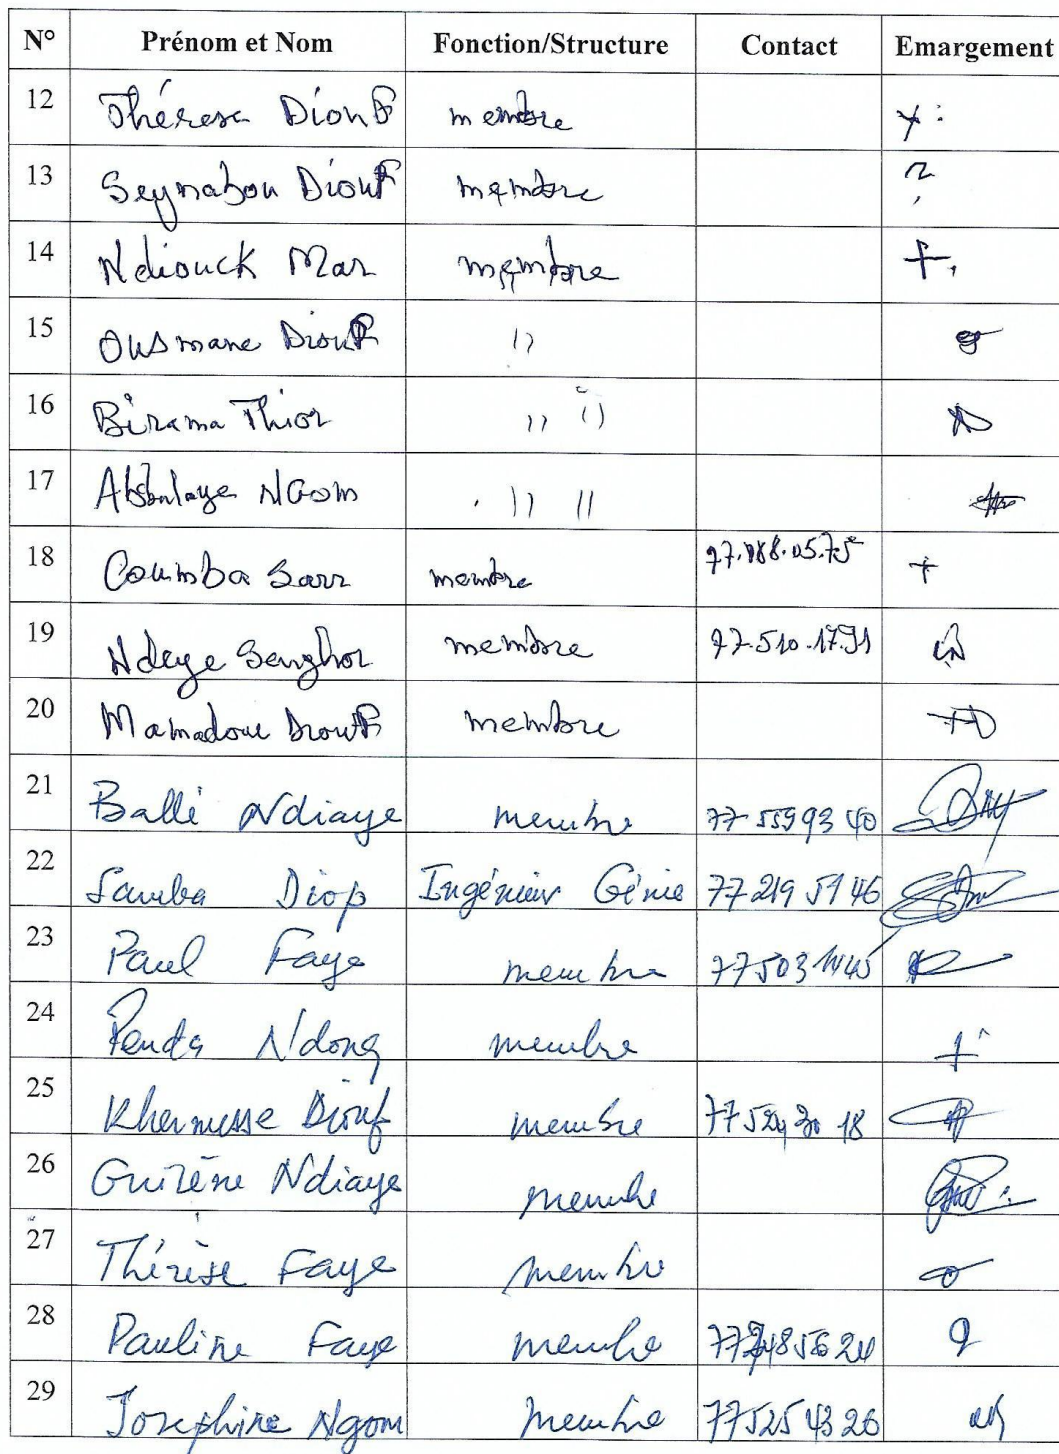 N° Prénom et Nom Fonction/Structure Contact Emargement
12 Thérese Diouf membre
13 Seynabou Diouf membre
14 Ndiouck Mar membre
15 Ousmane Diouf ''
16 Birama Thior '' ''
17 Abdoulaye NGom '' ''
18 Coumba Sarr membre
19 Ndeye Senghor membre 77.510.17.91
20 Mamadou Diouf membre
21 Ballé Ndiaye membre 77 559 93 40
22 Samba Diop Ingénieur Génie 77 219 51 46
23 Paul Faye membre 77 503
24 Penda Ndong membre
25 Diouf membre
26 Guilène Ndiaye membre
27 Thérèse Faye membre
28 Pauline Faye membre
29 Josephine Ngom membre 77 525 43 26